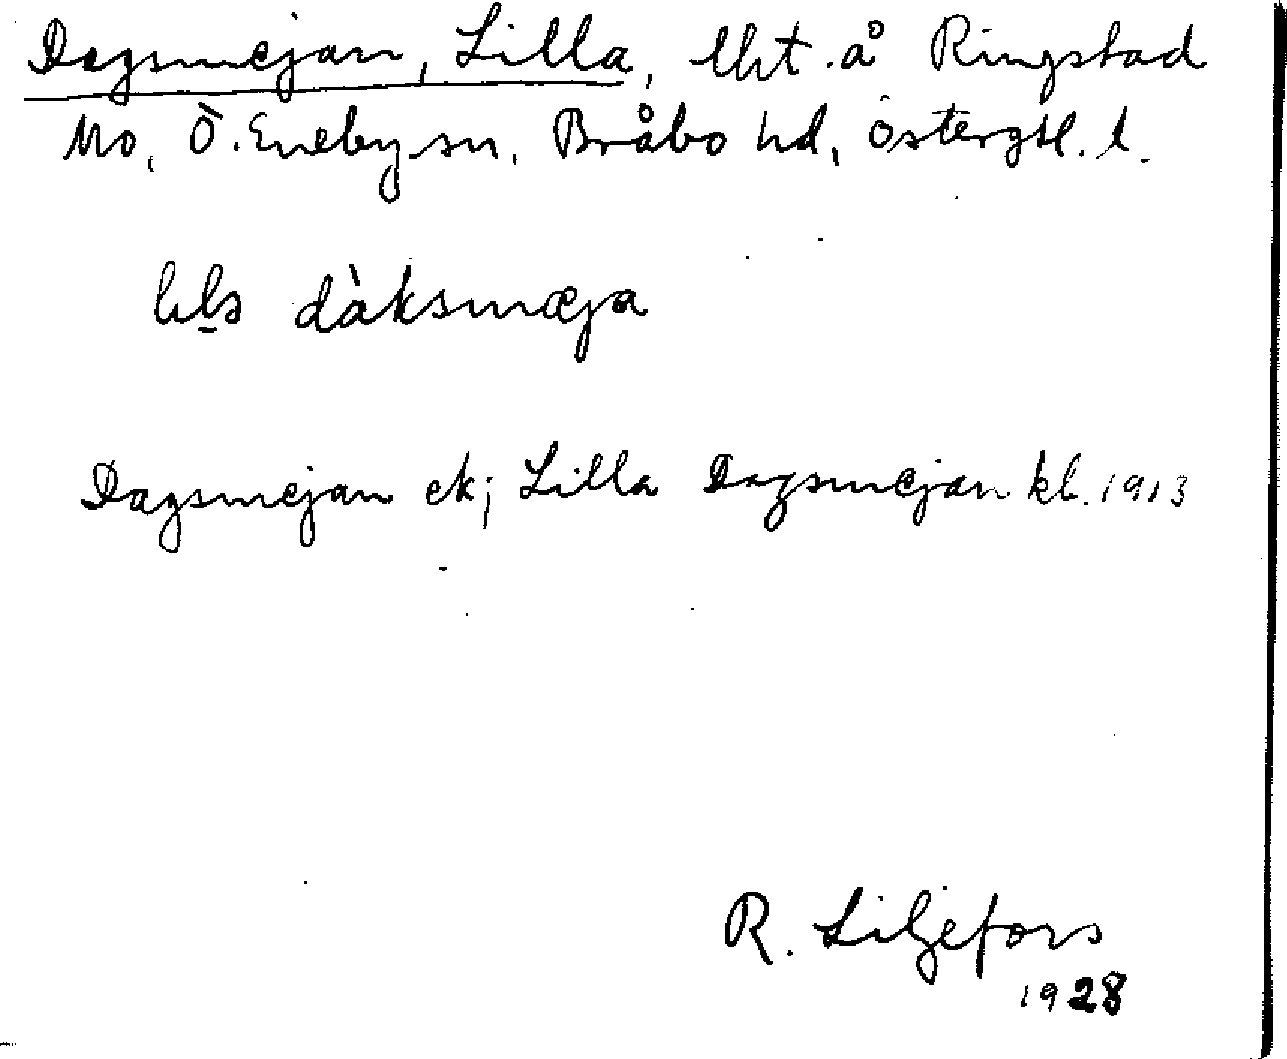 Dagsmejan, Lilla, lht. å Ringstad
Mo, Ö. Eneby sn, Bråbo hd, Östergtl. l.
dàksmæja
Dagsmejan ek; Lilla Dagsmejan kl. 1913
R. Liljefors
1928